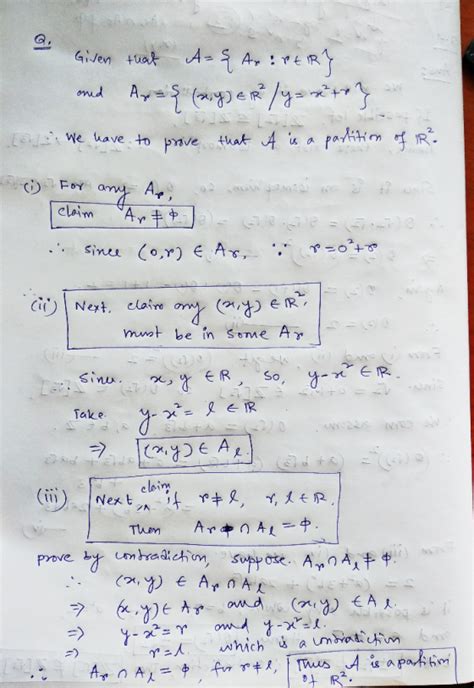 Q.
Given that A = { Ar : r ∈ ℝ }
and Ar = { (x,y) ∈ ℝ² / y = x² + r }
∴ We have to prove that A is a partition of ℝ².
(i) For any Ar,
claim Ar ≠ ϕ
∴ since (0,r) ∈ Ar, ∵ r = 0² + r
(ii) Next. claim any (x,y) ∈ ℝ²,
must be in some Ar
Since. x, y ∈ ℝ, so, y - x² ∈ ℝ.
Take y - x² = l ∈ ℝ
⇒ (x,y) ∈ Al.
(iii) Next claim if r ≠ l, r, l ∈ ℝ.
Then Ar ∩ Al = ϕ.
prove by contradiction, suppose Ar ∩ Al ≠ ϕ.
∴ (x,y) ∈ Ar ∩ Al
⇒ (x,y) ∈ Ar and (x,y) ∈ Al.
⇒ y - x² = r and y - x² = l.
⇒ r = l. which is a contradiction
∴ Ar ∩ Al = ϕ, for r ≠ l, Thus A is a partition
of ℝ².